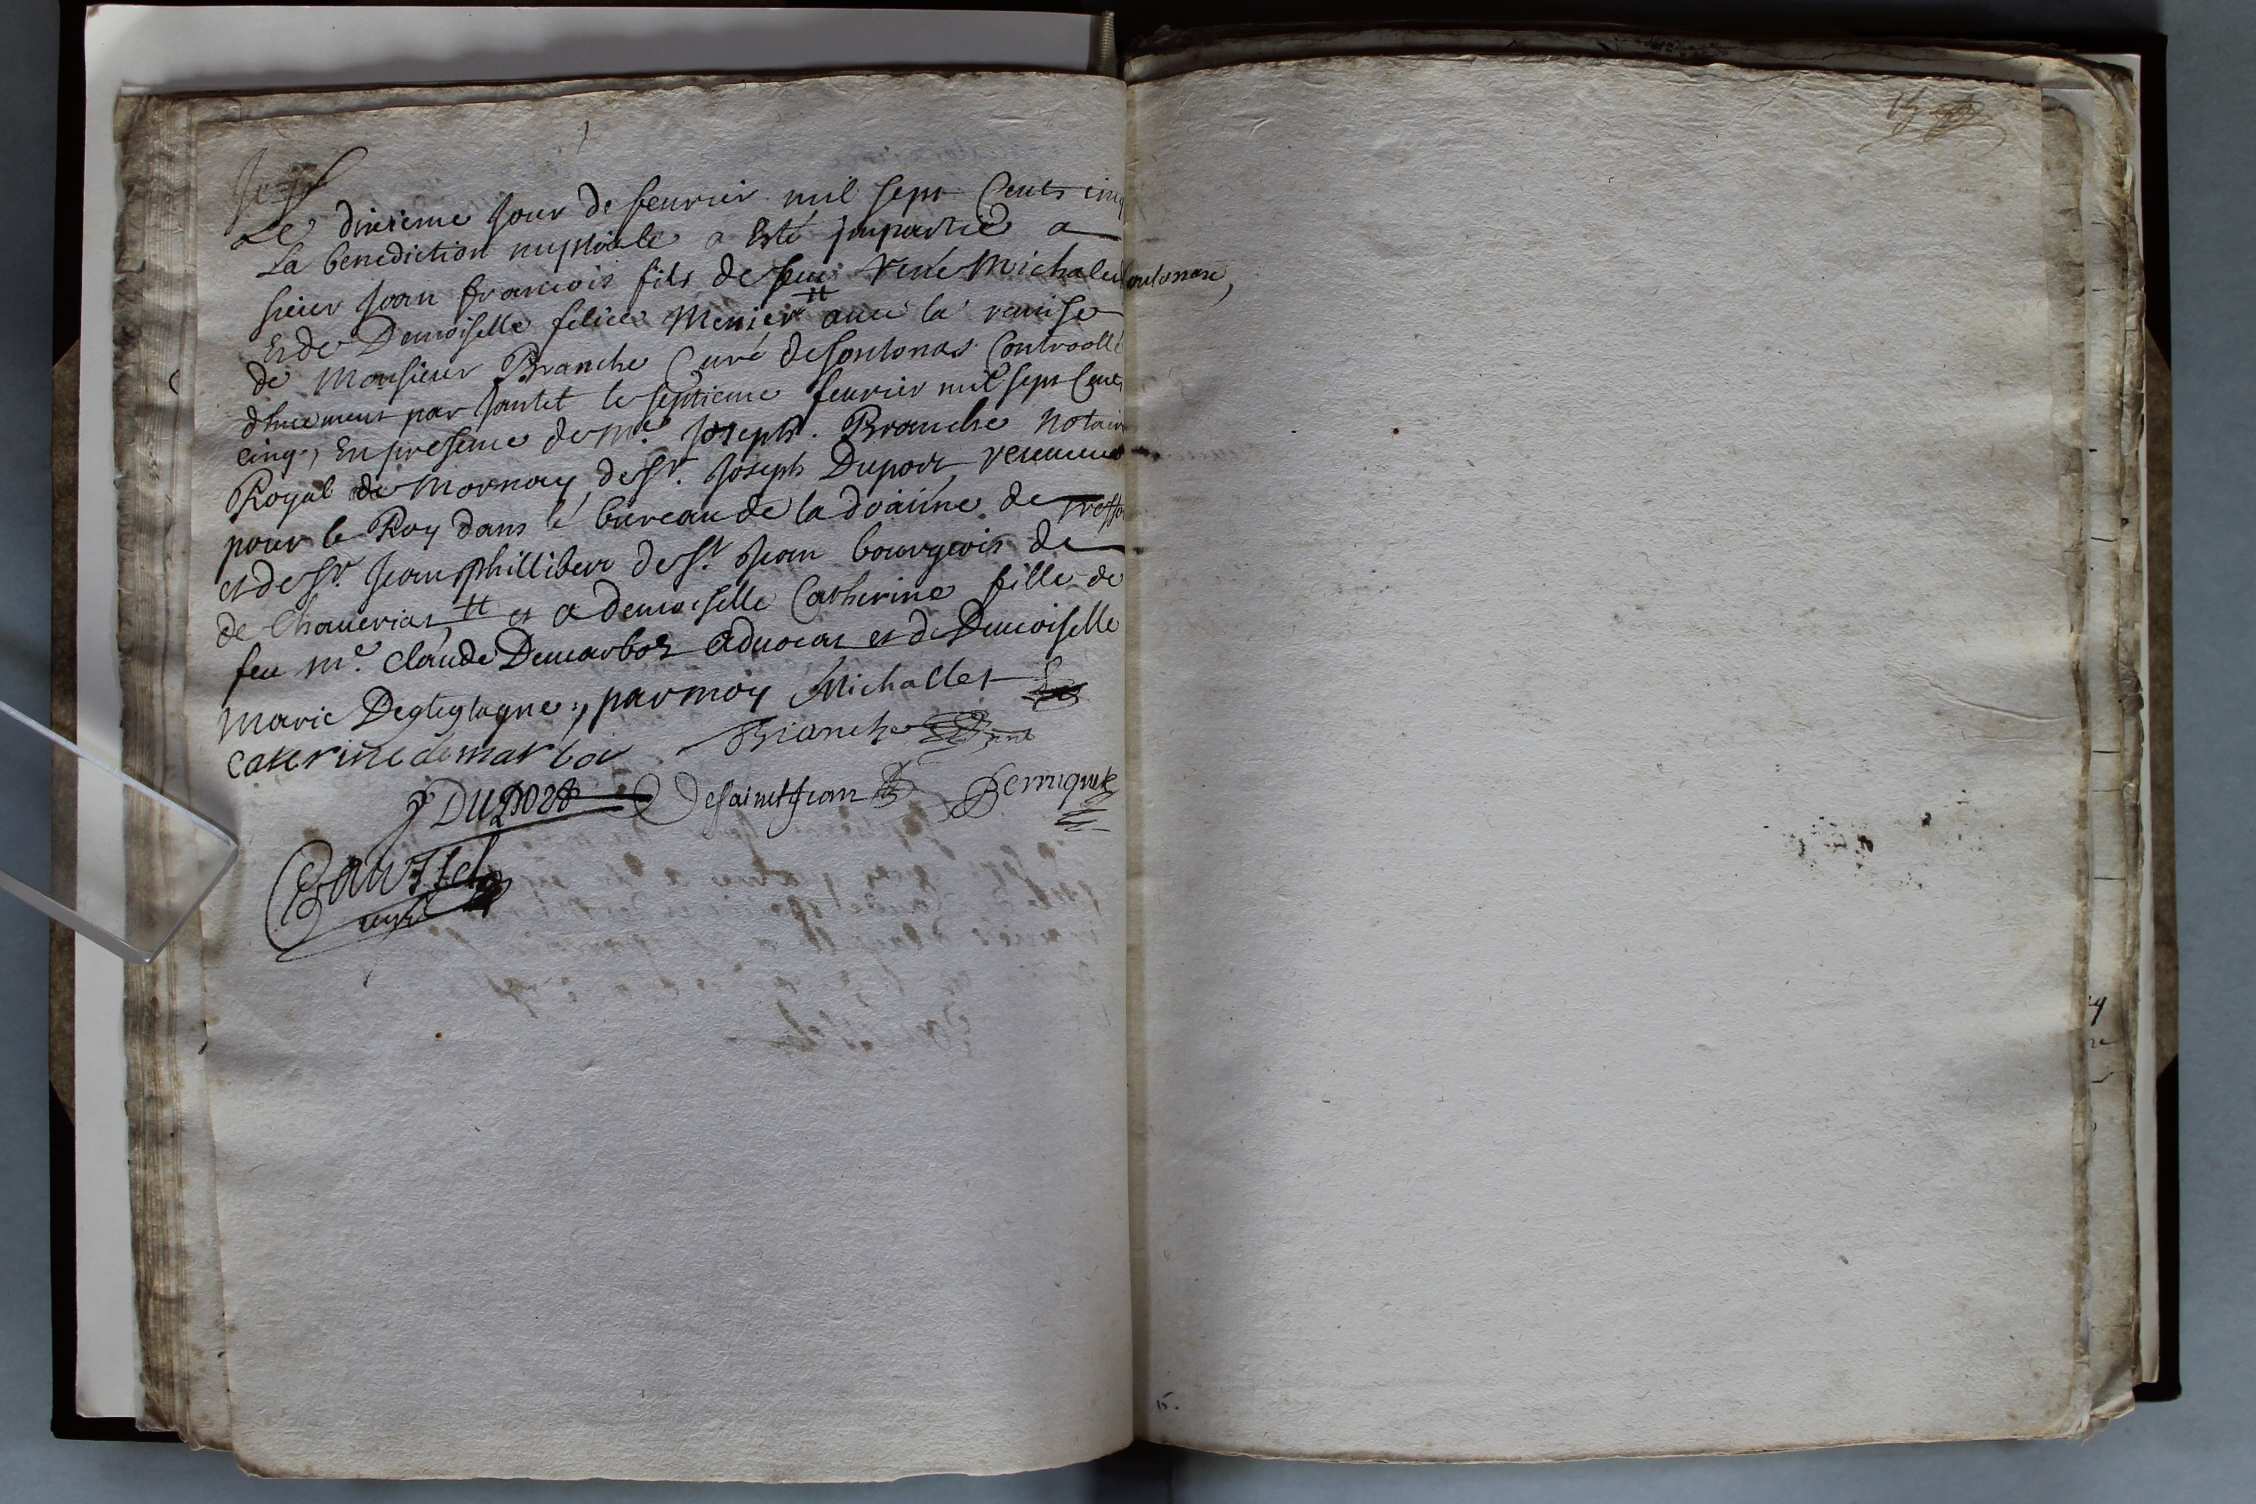 Le dixieme Jour de feurier mil sept Cents cinq
La benediction nuptiale a Esté Impartie a
sieur Jean francois fils de feu René Michalet
Et de Demoiselle felice Menier auec la remise
de Monsieur Branche Curé de Contrvollé
dhuement par Jantet le septieme feurier mil sept Cent
cinq, En presence de Me. Joseph. Branche Notaire
Royal de Mornay de Sr. Joseph Duport receueur
pour le Roy dans le bureau de la doaüne de
et de Sr. Jean Phillibert de St. Jean bourgeois de
de Chauerias et a demoiselle Catherine fille de
feu Me. Claude Demarboz Aduocat et de Demoiselle
Marie Degleglagne, par moy Michallet
caterine demarboz Branche
J DUPORt Desainct Jean Perruquet
curé
15.